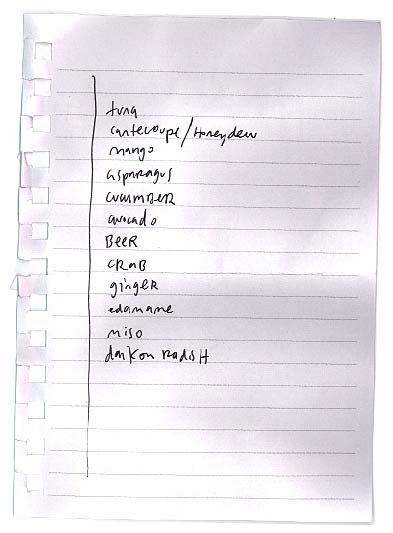 tuna
cantecoupe/Honeydew
mango
asparagus
cucumBER
avocado
BeeR
CRaB
gingeR
edamame
miso
daikon RadisH